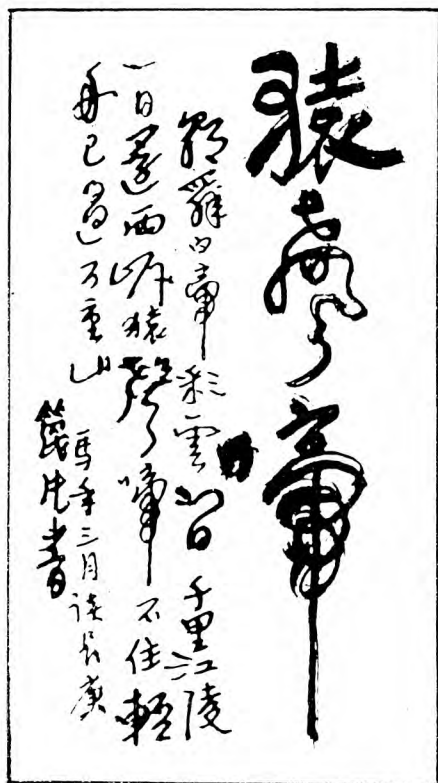 猿聲啼
朝辭白帝彩雲間千里江陵
一日還兩岸猿聲啼不住輕
舟已過万重山
馬年三月读長庚
書